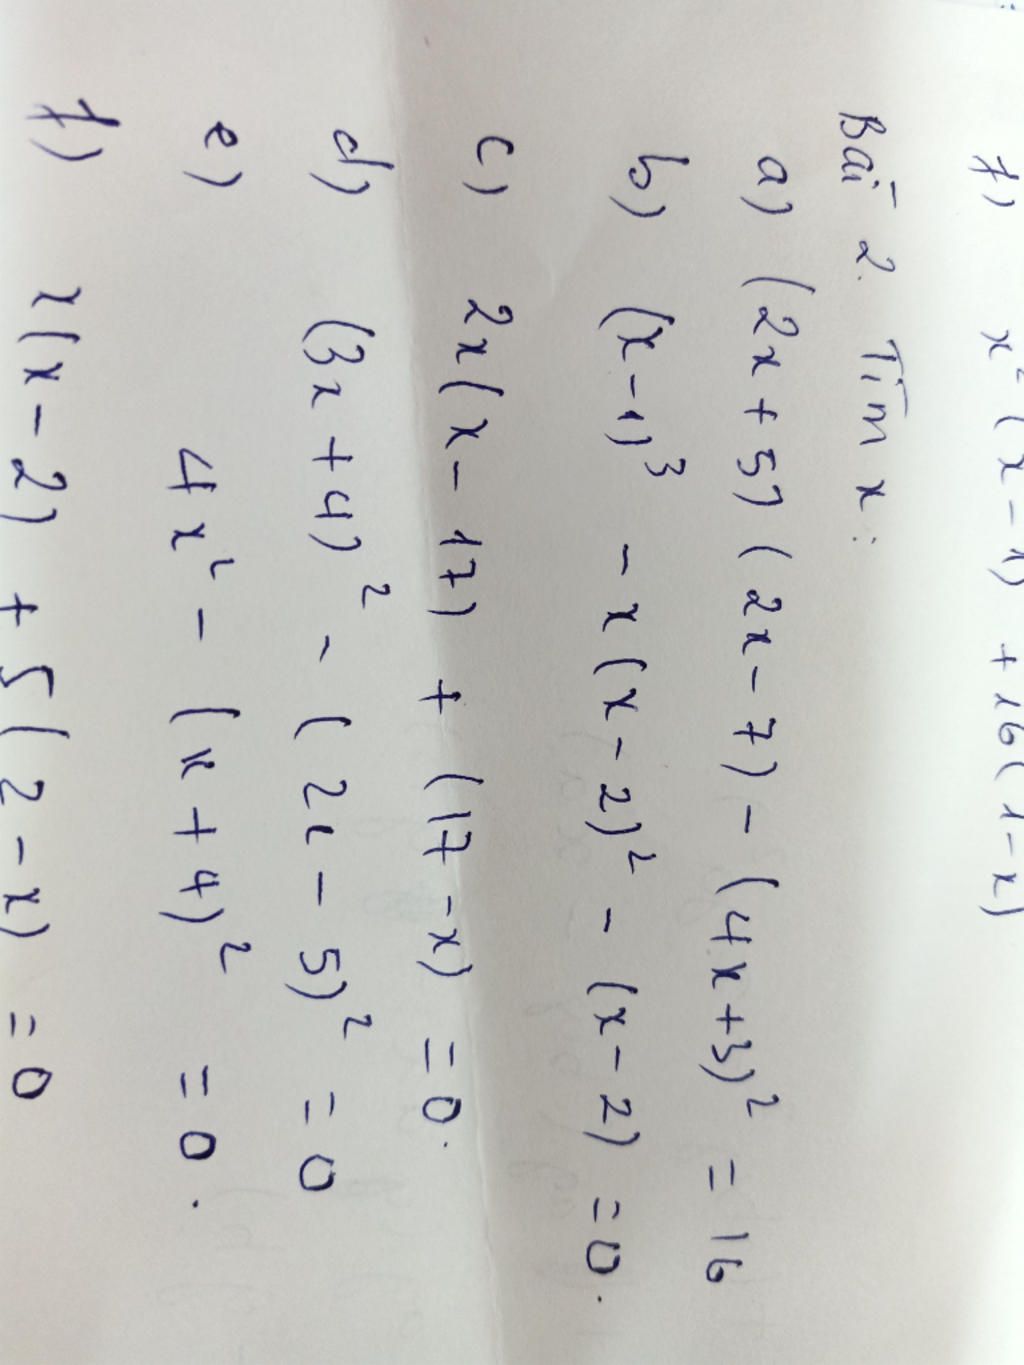 f) x² (x - 1) + 16( 1 - x)
Bài 2. Tìm x :
a) (2x + 5) ( 2x - 7) - (4x + 3)² = 16
b) (x - 1)³ - x (x - 2)² - (x - 2) = 0.
c) 2x (x - 17) + (17 - x) = 0.
d) (3x + 4)² - ( 2x - 5)² = 0
e) 4x² - (x + 4)² = 0.
f) x(x - 2) + 5( 2 - x) = 0